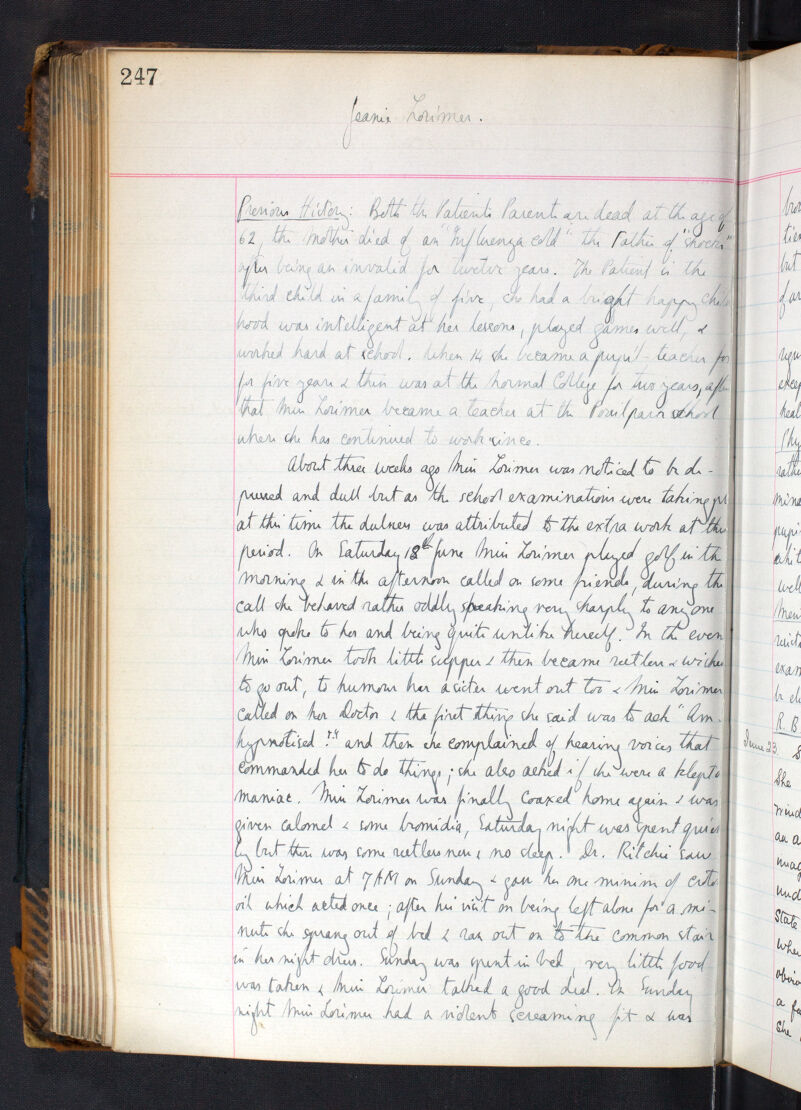 247
Jeanie Lorimer.
Previous History: Both the Patients Parents are dead at the age of
62, the mother died of an "Influenza cold" the Father of "shocks"
after being an invalid for twelve years. The Patient is the
third child in a family of five, she had a bright happy child
hood was intelligent at her lessons, played games well, &
worked hard at school. When 14 she became a pupil-teacher for
for five years & then was at the Normal College for two years, after
that Miss Lorimer became a teacher at the school
where she has continued to work since.
About three weeks ago Miss Lorimer was noticed to be de-
pressed and dull but as the school examinations were taking pl
at this time the dulness was attributed to the extra work at this
period. On Saturday 18th June Miss Lorimer played golf in the
morning & in the afternoon called on some friends, during the
call she behaved rather oddly speaking very sharply to any one
who spoke to her and being quite unlike herself. In the even
Miss Lorimer took little supper & then became restless & wished
to go out, to humour her a sister went out too & Miss Lorimer
called on her Doctor & the first thing she said was to ask "Am
hypnotised?" and then she complained of hearing voices that
commanded her to do things; she also asked if she were a klepto
maniac. Miss Lorimer was finally coaxed home again & was
given calomel & some bromidia, Saturday night was spent quiet
ly but there was some restlessness & no sleep. Dr. Ritchie saw
Miss Lorimer at 7 AM on Sunday & gave her one minim of croton
oil which acted once; after his visit on being left alone for a mi-
nute she sprang out of bed & ran out on to the common stair
in her night dress. Sunday was spent in bed, very little food
was taken & Miss Lorimer talked a good deal. On Sunday
night Miss Lorimer had a violent screaming fit & was
June 23.
She